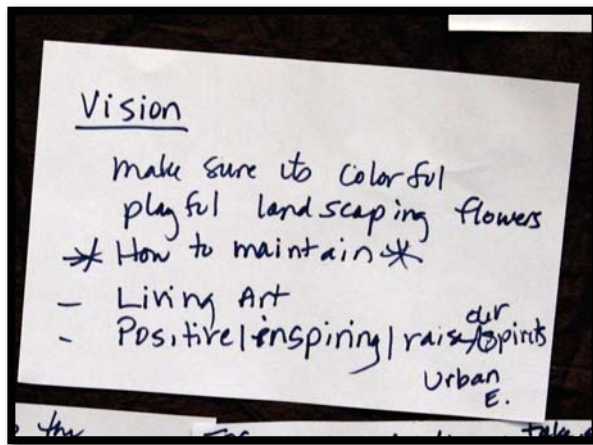 Vision
make sure its colorful
playful landscaping flowers
* How to maintain *
- Living Art
- Positive/inspiring/raise our spirits
Urban
E.
the
take